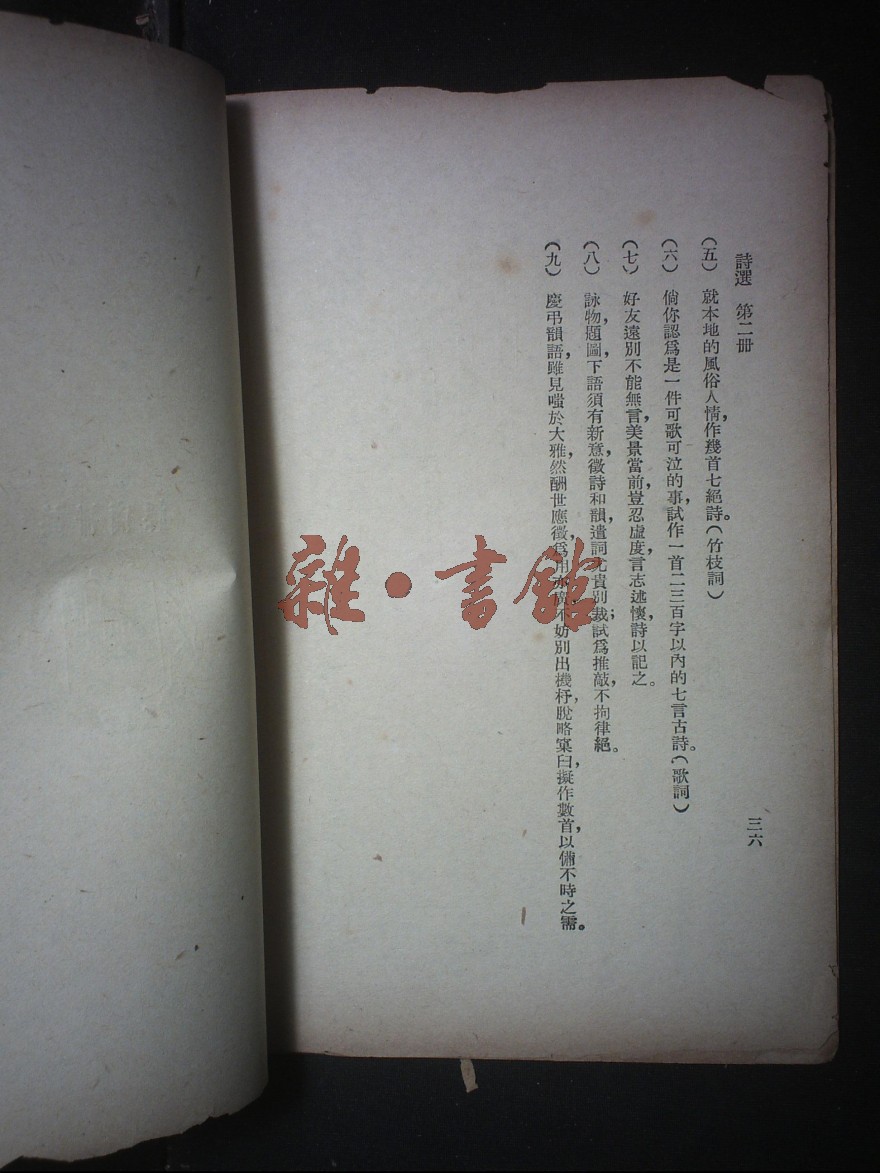 詩選　第二冊
三六
(五)　就本地的風俗人情，作幾首七絕詩。(竹枝詞)
(六)　倘你認爲是一件可歌可泣的事，試作一首二三百字以內的七言古詩。(歌詞)
(七)　好友遠別不能無言，美景當前，豈忍虛度，言志述懷，詩以記之。
(八)　詠物，題圖，下語須有新意，徵詩和韻，遣詞尤貴別裁；試爲推敲，不拘律絕。
(九)　慶弔韻語，雖見嗤於大雅，然酬世應徵，爲用亦廣，不妨別出機杼，脫略窠臼，擬作數首，以備不時之需。
雜·書館